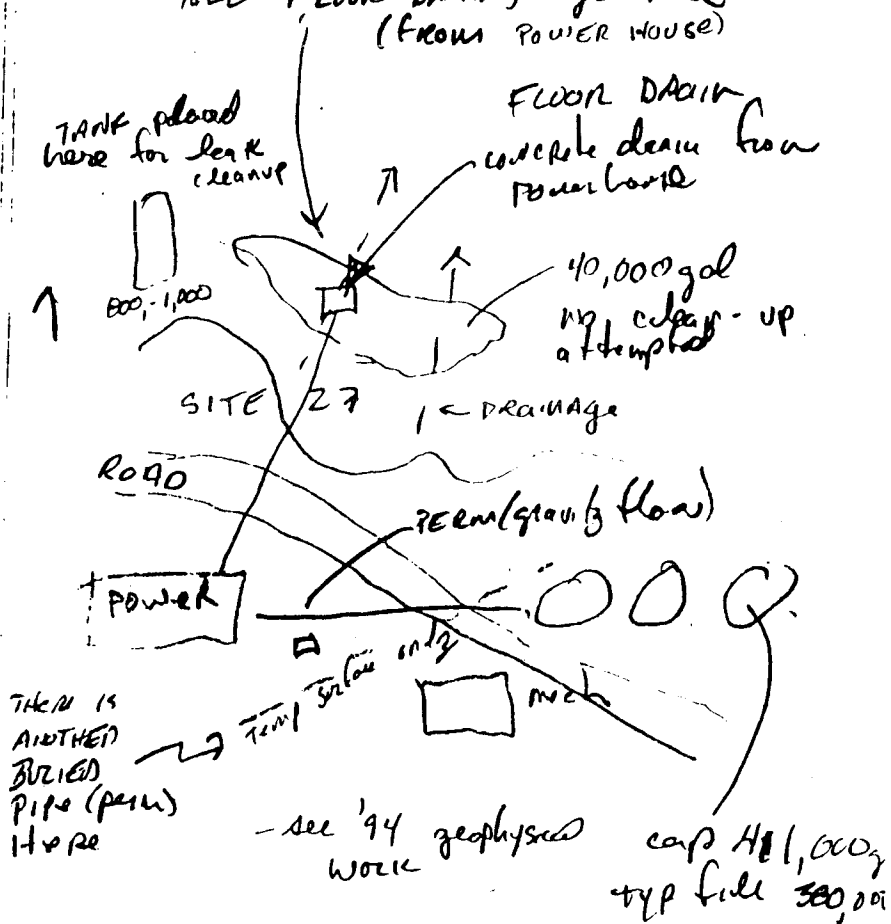 FLOOR DRAIN
(FROM POWER HOUSE)
FLOOR DRAIN
concrete drain from
Powerhouse
TANK placed
here for leak
cleanup
800,-1,000
40,000 gal
no clean-up
attempted
SITE 27
← DRAINAge
ROAD
PERM (gravity flow)
POWER
Temp surface only
mech
THERE IS
ANOTHER
BURIED
PIPe (perm)
HeRe
- see '94 geophysical
WORK
cap 411,000g
typ fill 380,000